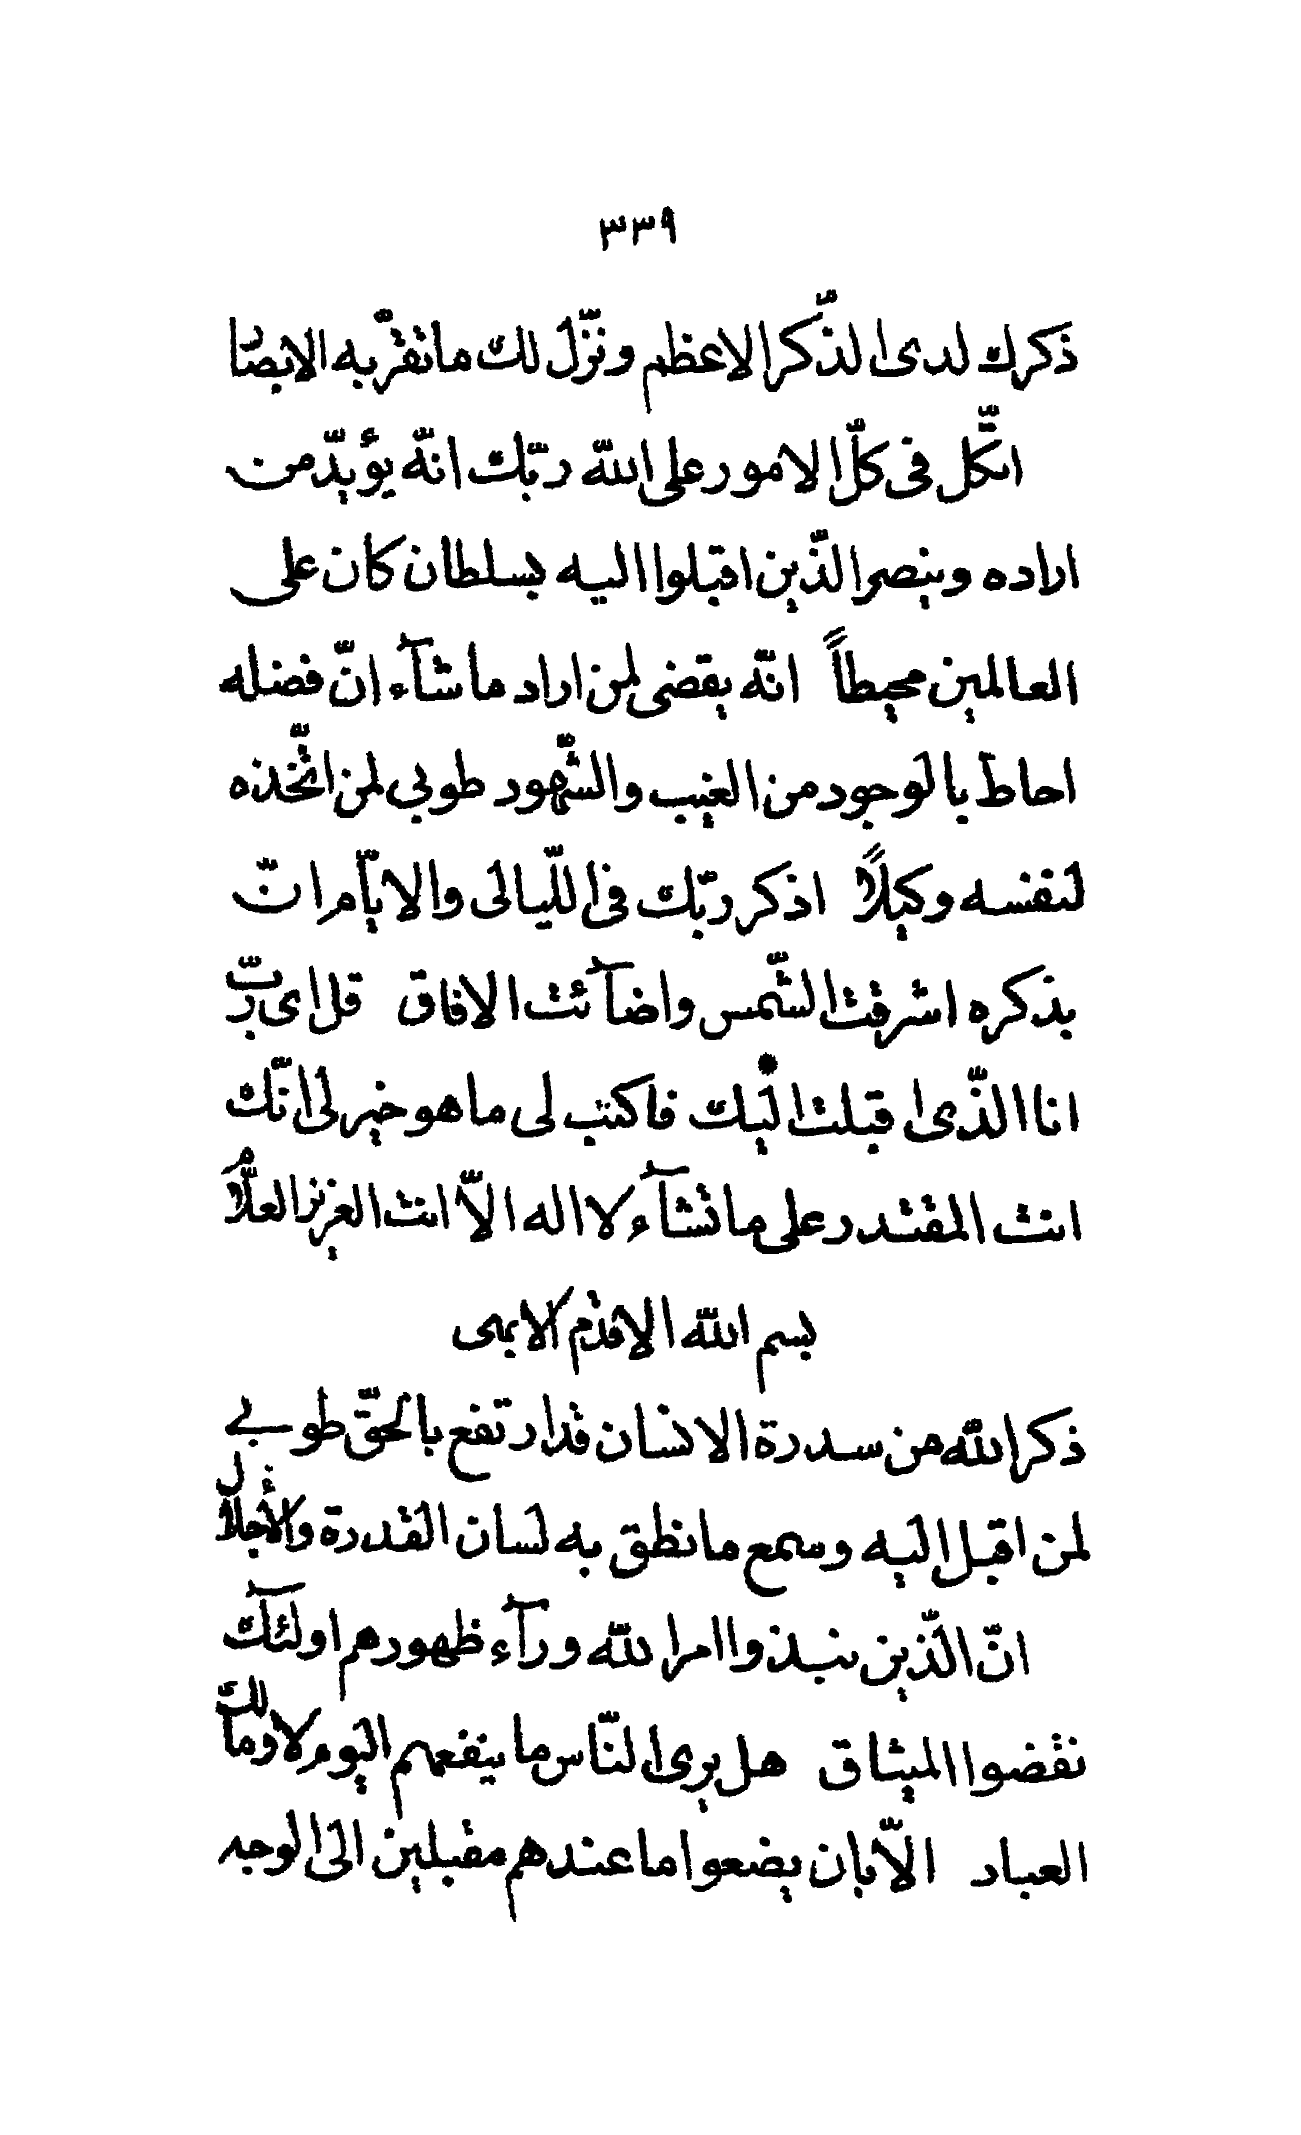 ٣٣٩
ذكرك لدى الذّكر الاعظم و نزّل لك ما تقرّ به الابصار
اتّكل فى كلّ الامور على الله ربّك انّه يؤيّد من
اراده و ينصر الذّين اقبلوا اليه بسلطان كان على
العالمين محيطاً انّه يقضى لمن اراد ما شآء انّ فضله
احاط بالوجود من الغيب والشّهود طوبى لمن اتّخذه
لنفسه وكيلاً اذكر ربّك فى اللّيالى والايّام انّ
بذكره اشرقت الشّمس واضآئت الافاق قل اى ربّ
انا الذّى اقبلت اليك فاكتب لى ما هو خير لى انّك
انت المقتدر على ما تشآء لا اله الاّ انت العزيز العلّام
بسم الله الاقدم الابهى
ذكر الله من سدرة الانسان قد ارتفع بالحقّ طوبى
لمن اقبل اليه وسمع ما نطق به لسان القدرة والأجلال
انّ الّذين نبذوا امر الله ورآء ظهورهم اولئك
نقضوا الميثاق هل يرى النّاس ما ينفعهم اليوم لا ومالك
العباد الاّ بان يضعوا ما عندهم مقبلين الى الوجه